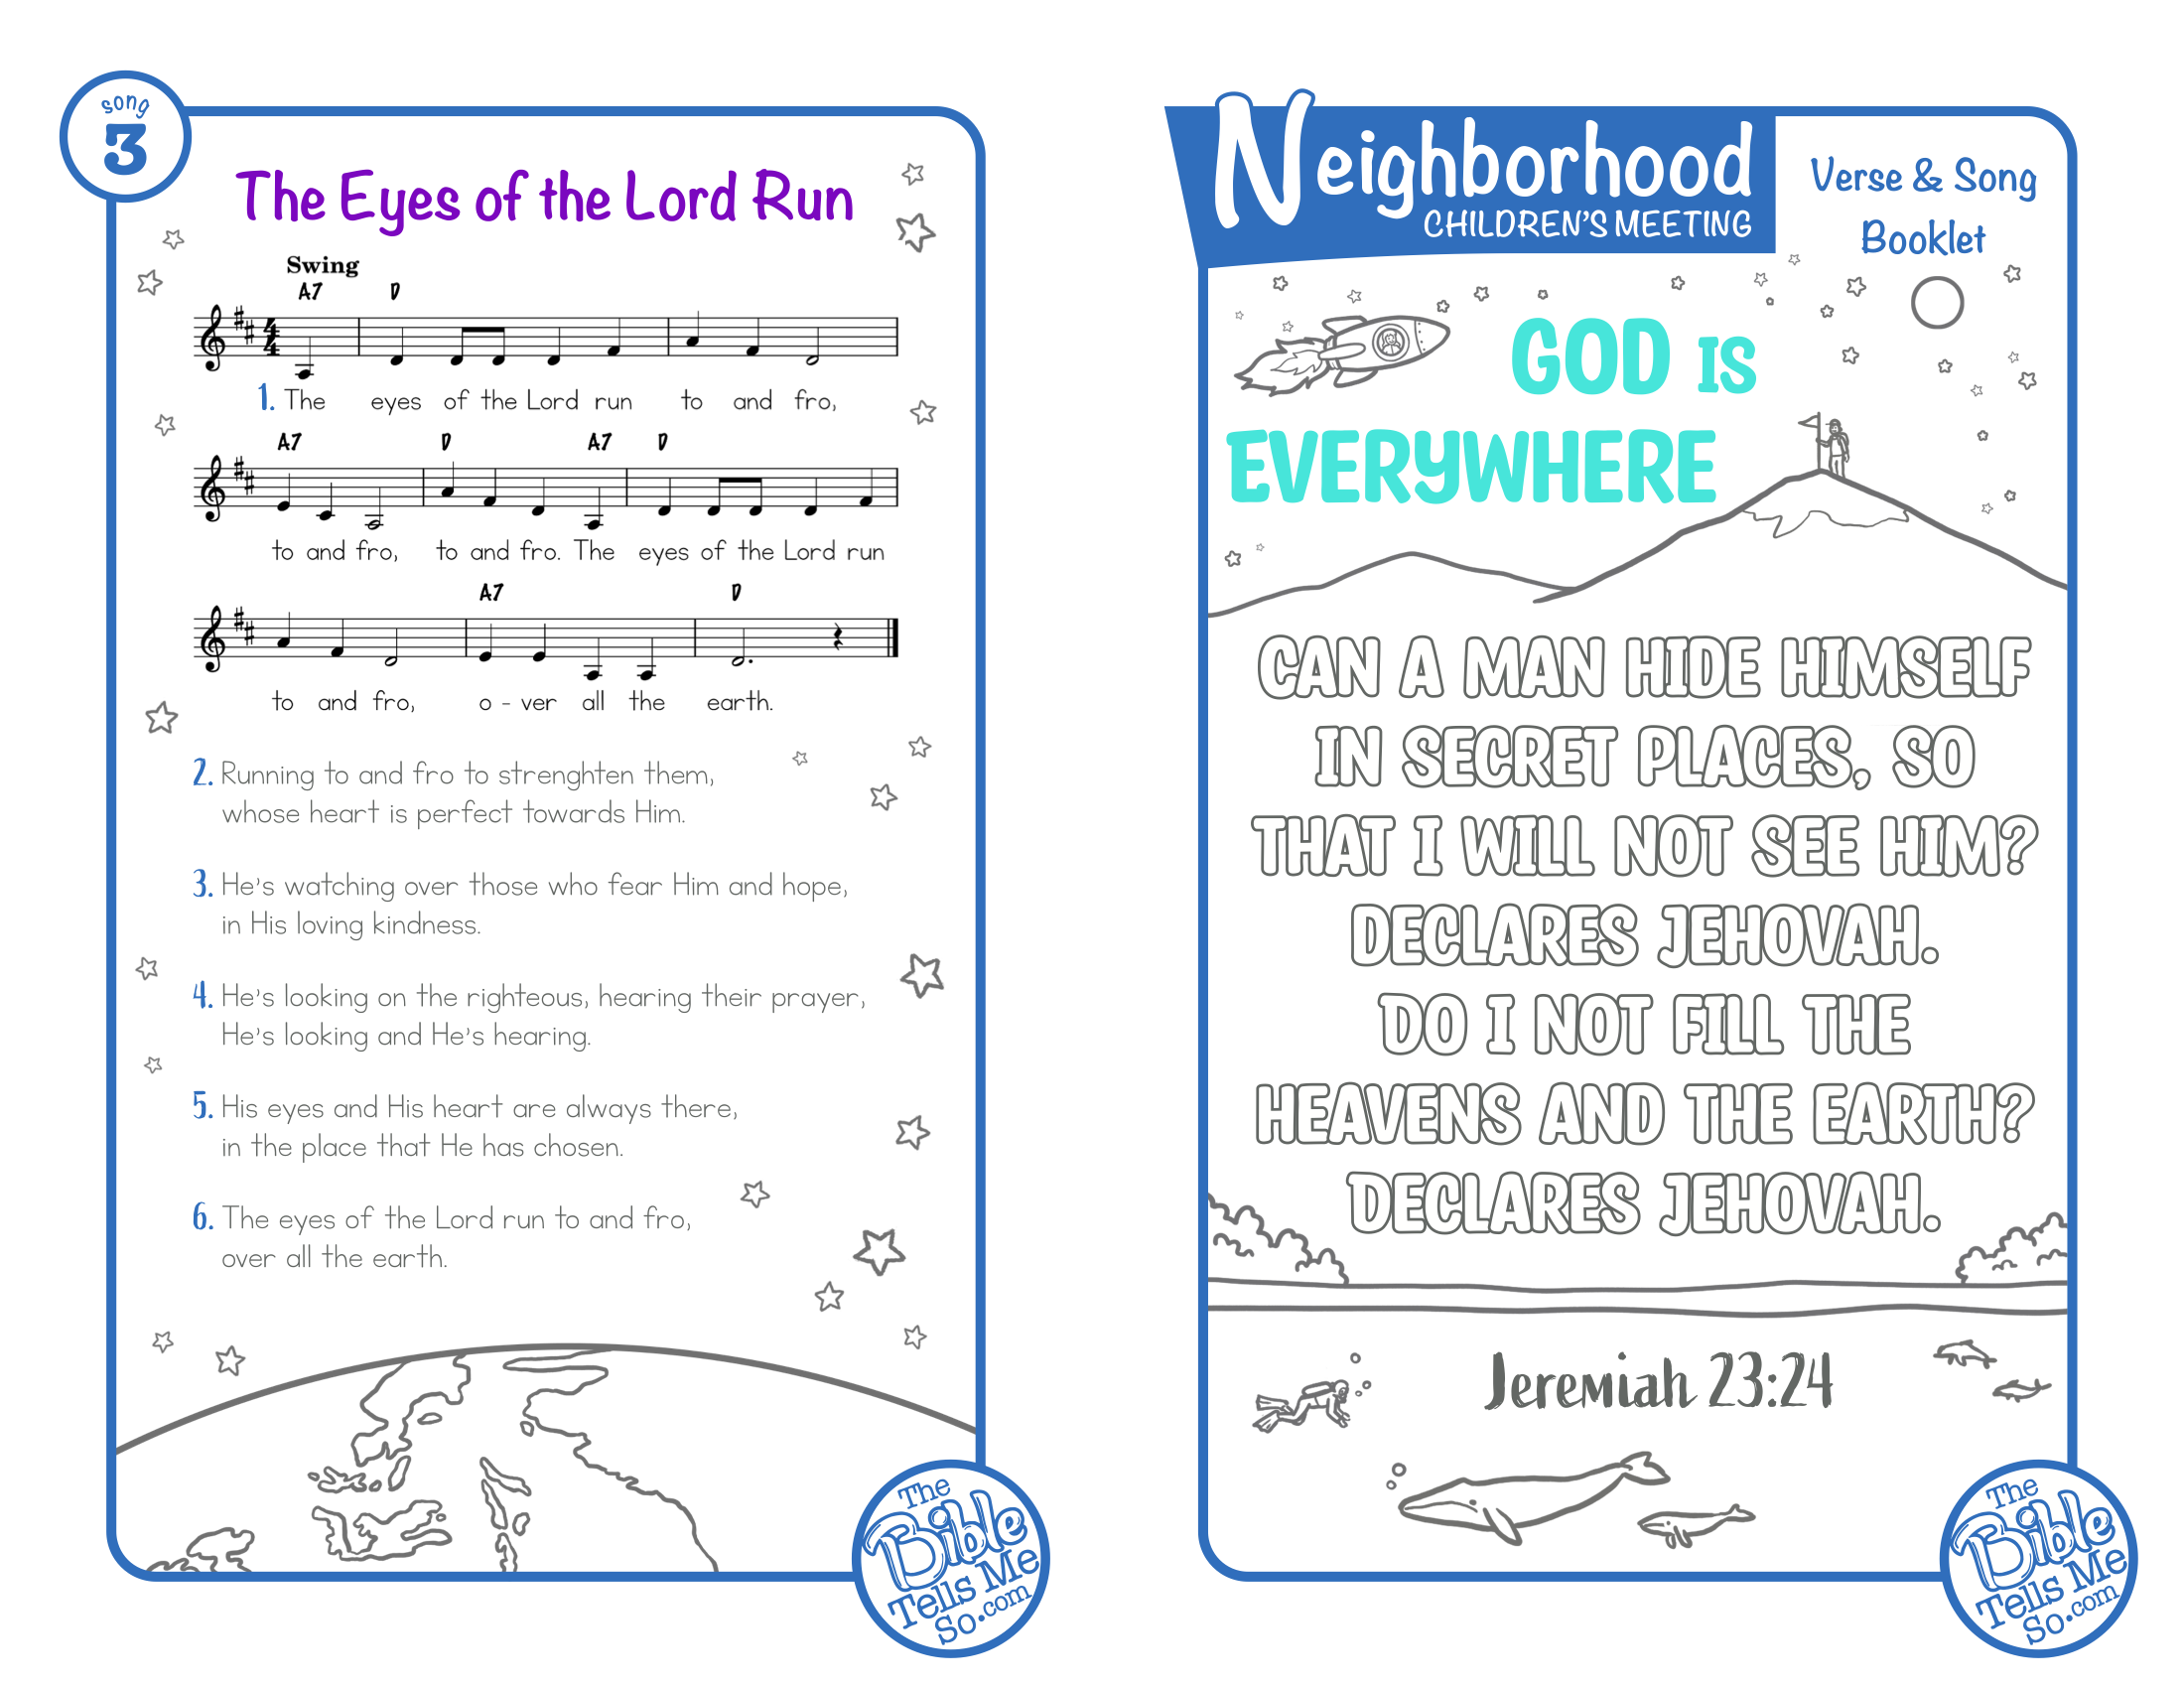 song
3
The Eyes of the Lord Run
Swing
A7 D
1. The eyes of the Lord run to and fro,
A7 D A7 D
to and fro, to and fro. The eyes of the Lord run
A7 D
to and fro, o - ver all the earth.
2. Running to and fro to strenghten them,
whose heart is perfect towards Him.
3. He's watching over those who fear Him and hope,
in His loving kindness.
4. He's looking on the righteous, hearing their prayer,
He's looking and He's hearing.
5. His eyes and His heart are always there,
in the place that He has chosen.
6. The eyes of the Lord run to and fro,
over all the earth.
The
Bible
Tells Me
So.com
Neighborhood
CHILDREN'S MEETING
Verse & Song
Booklet
GOD IS
EVERYWHERE
CAN A MAN HIDE HIMSELF
IN SECRET PLACES, SO
THAT I WILL NOT SEE HIM?
DECLARES JEHOVAH.
DO I NOT FILL THE
HEAVENS AND THE EARTH?
DECLARES JEHOVAH.
Jeremiah 23:24
The
Bible
Tells Me
So.com